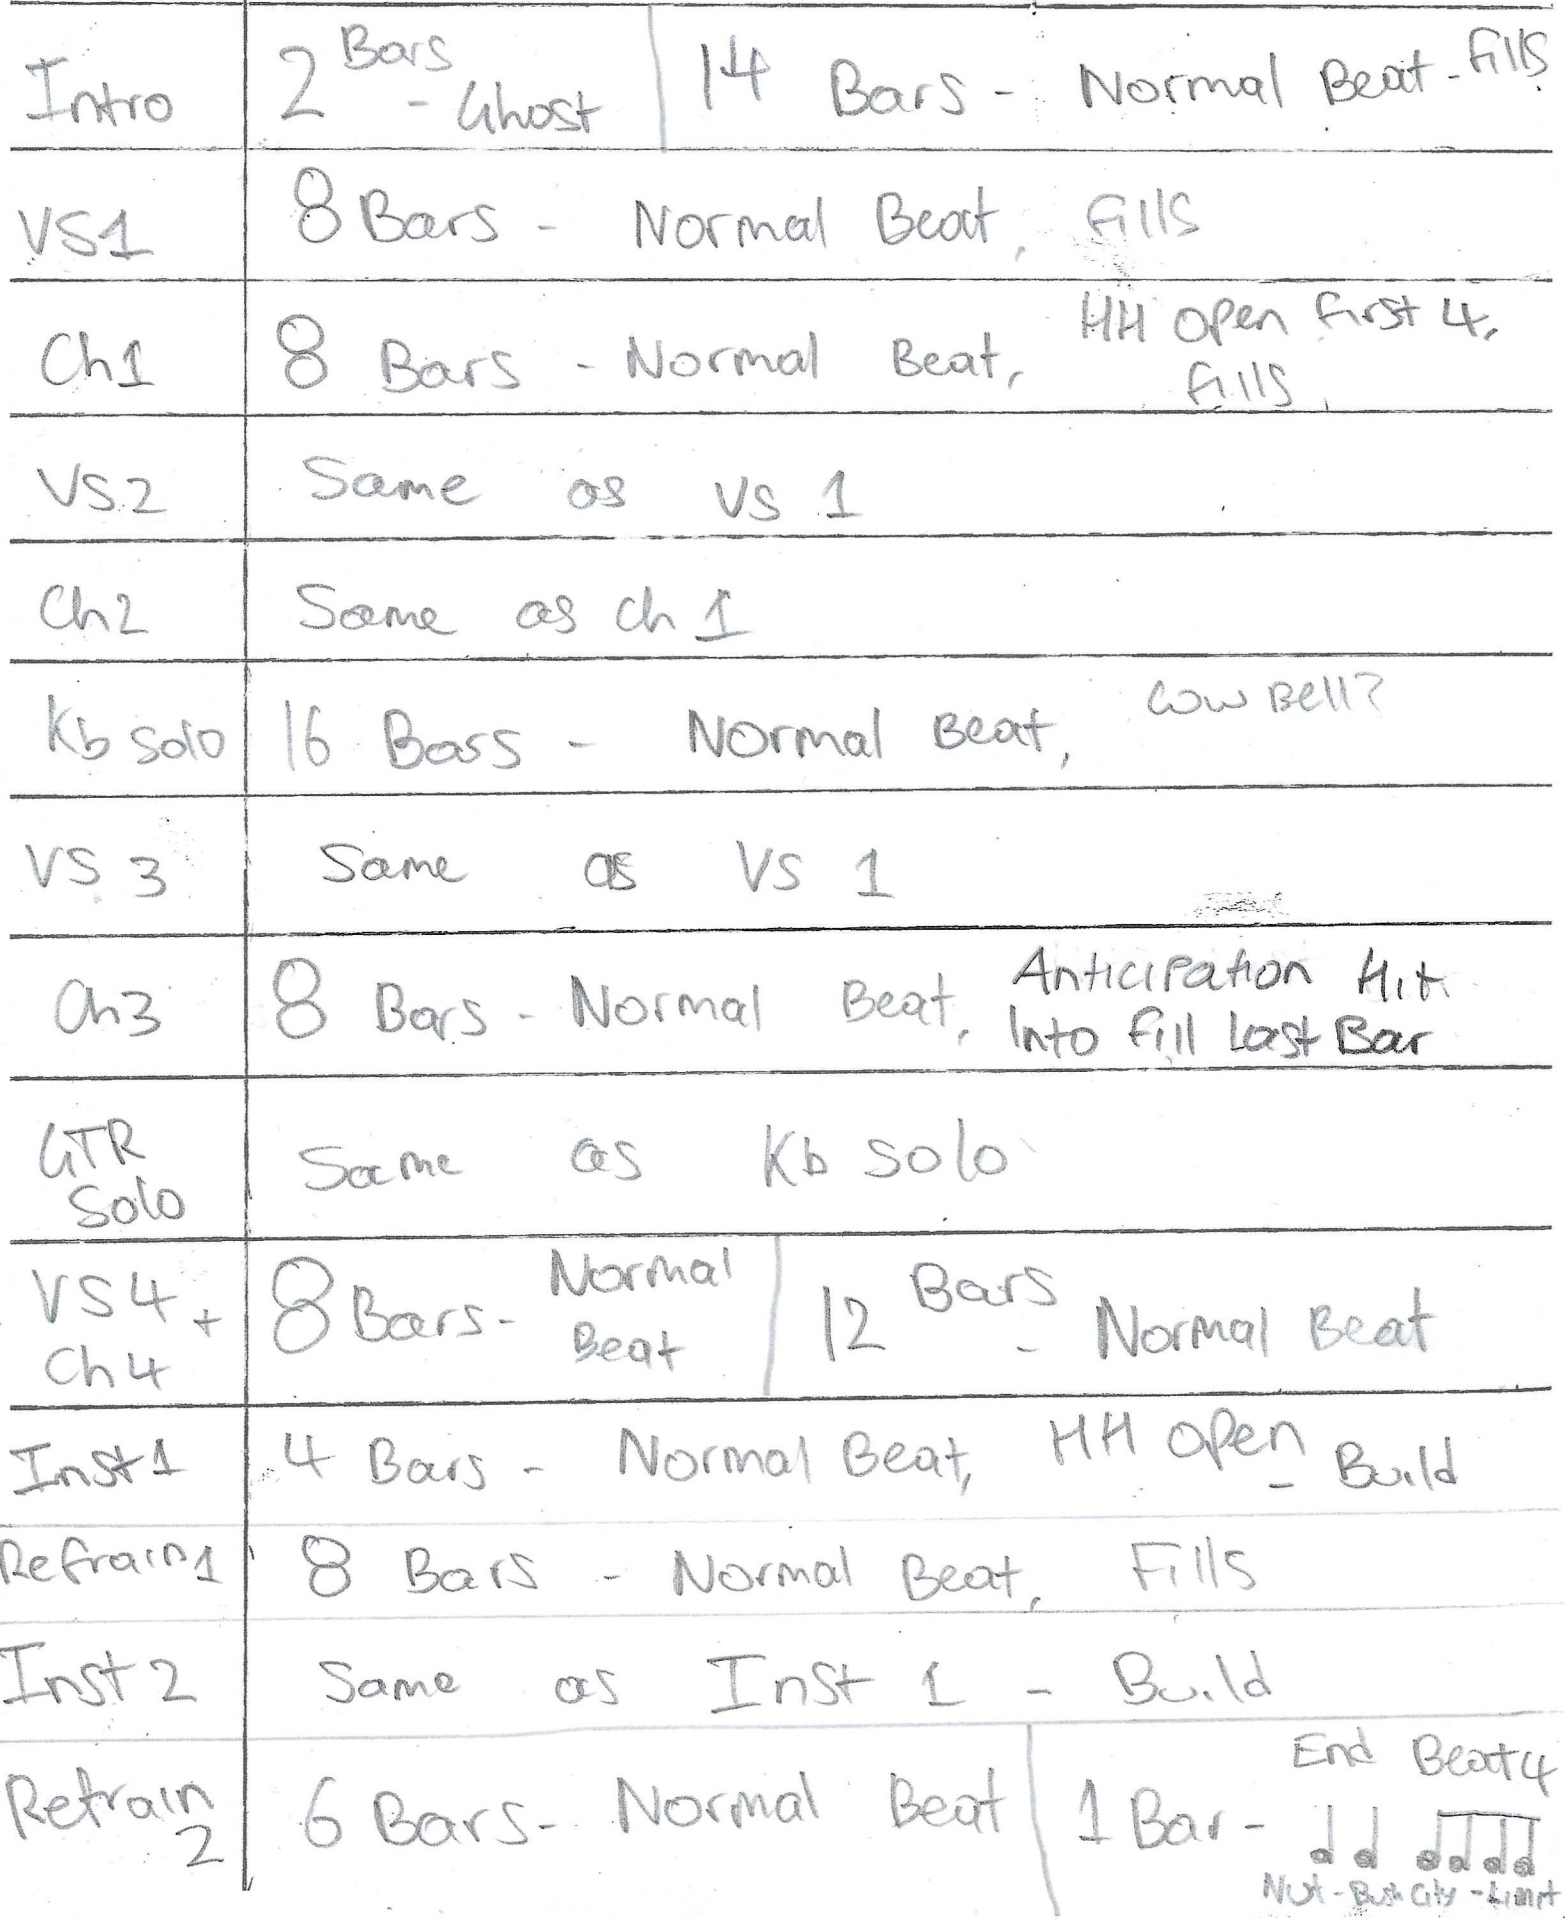 Intro 2 Bars - Ghost 14 Bars - Normal Beat - fills
VS1 8 Bars - Normal Beat, fills
Ch1 8 Bars - Normal Beat, HH open first 4,
fills
VS2 Same as VS 1
Ch2 Same as ch 1
Kb solo 16 Bars - Normal Beat, Cow Bell?
VS 3 Same as VS 1
Ch3 8 Bars - Normal Beat, Anticipation Hit
Into fill Last Bar
GTR
Solo
Same as Kb solo
VS4 +
Ch4
8 Bars - Normal
Beat
12 Bars - Normal Beat
Inst 1 4 Bars - Normal Beat, HH open - Build
Refrain 1 8 Bars - Normal Beat, Fills
Inst 2 Same as Inst 1 - Build
Refrain
2
6 Bars - Normal Beat
1 Bar - End Beat 4
Nut - Bush City - Limit